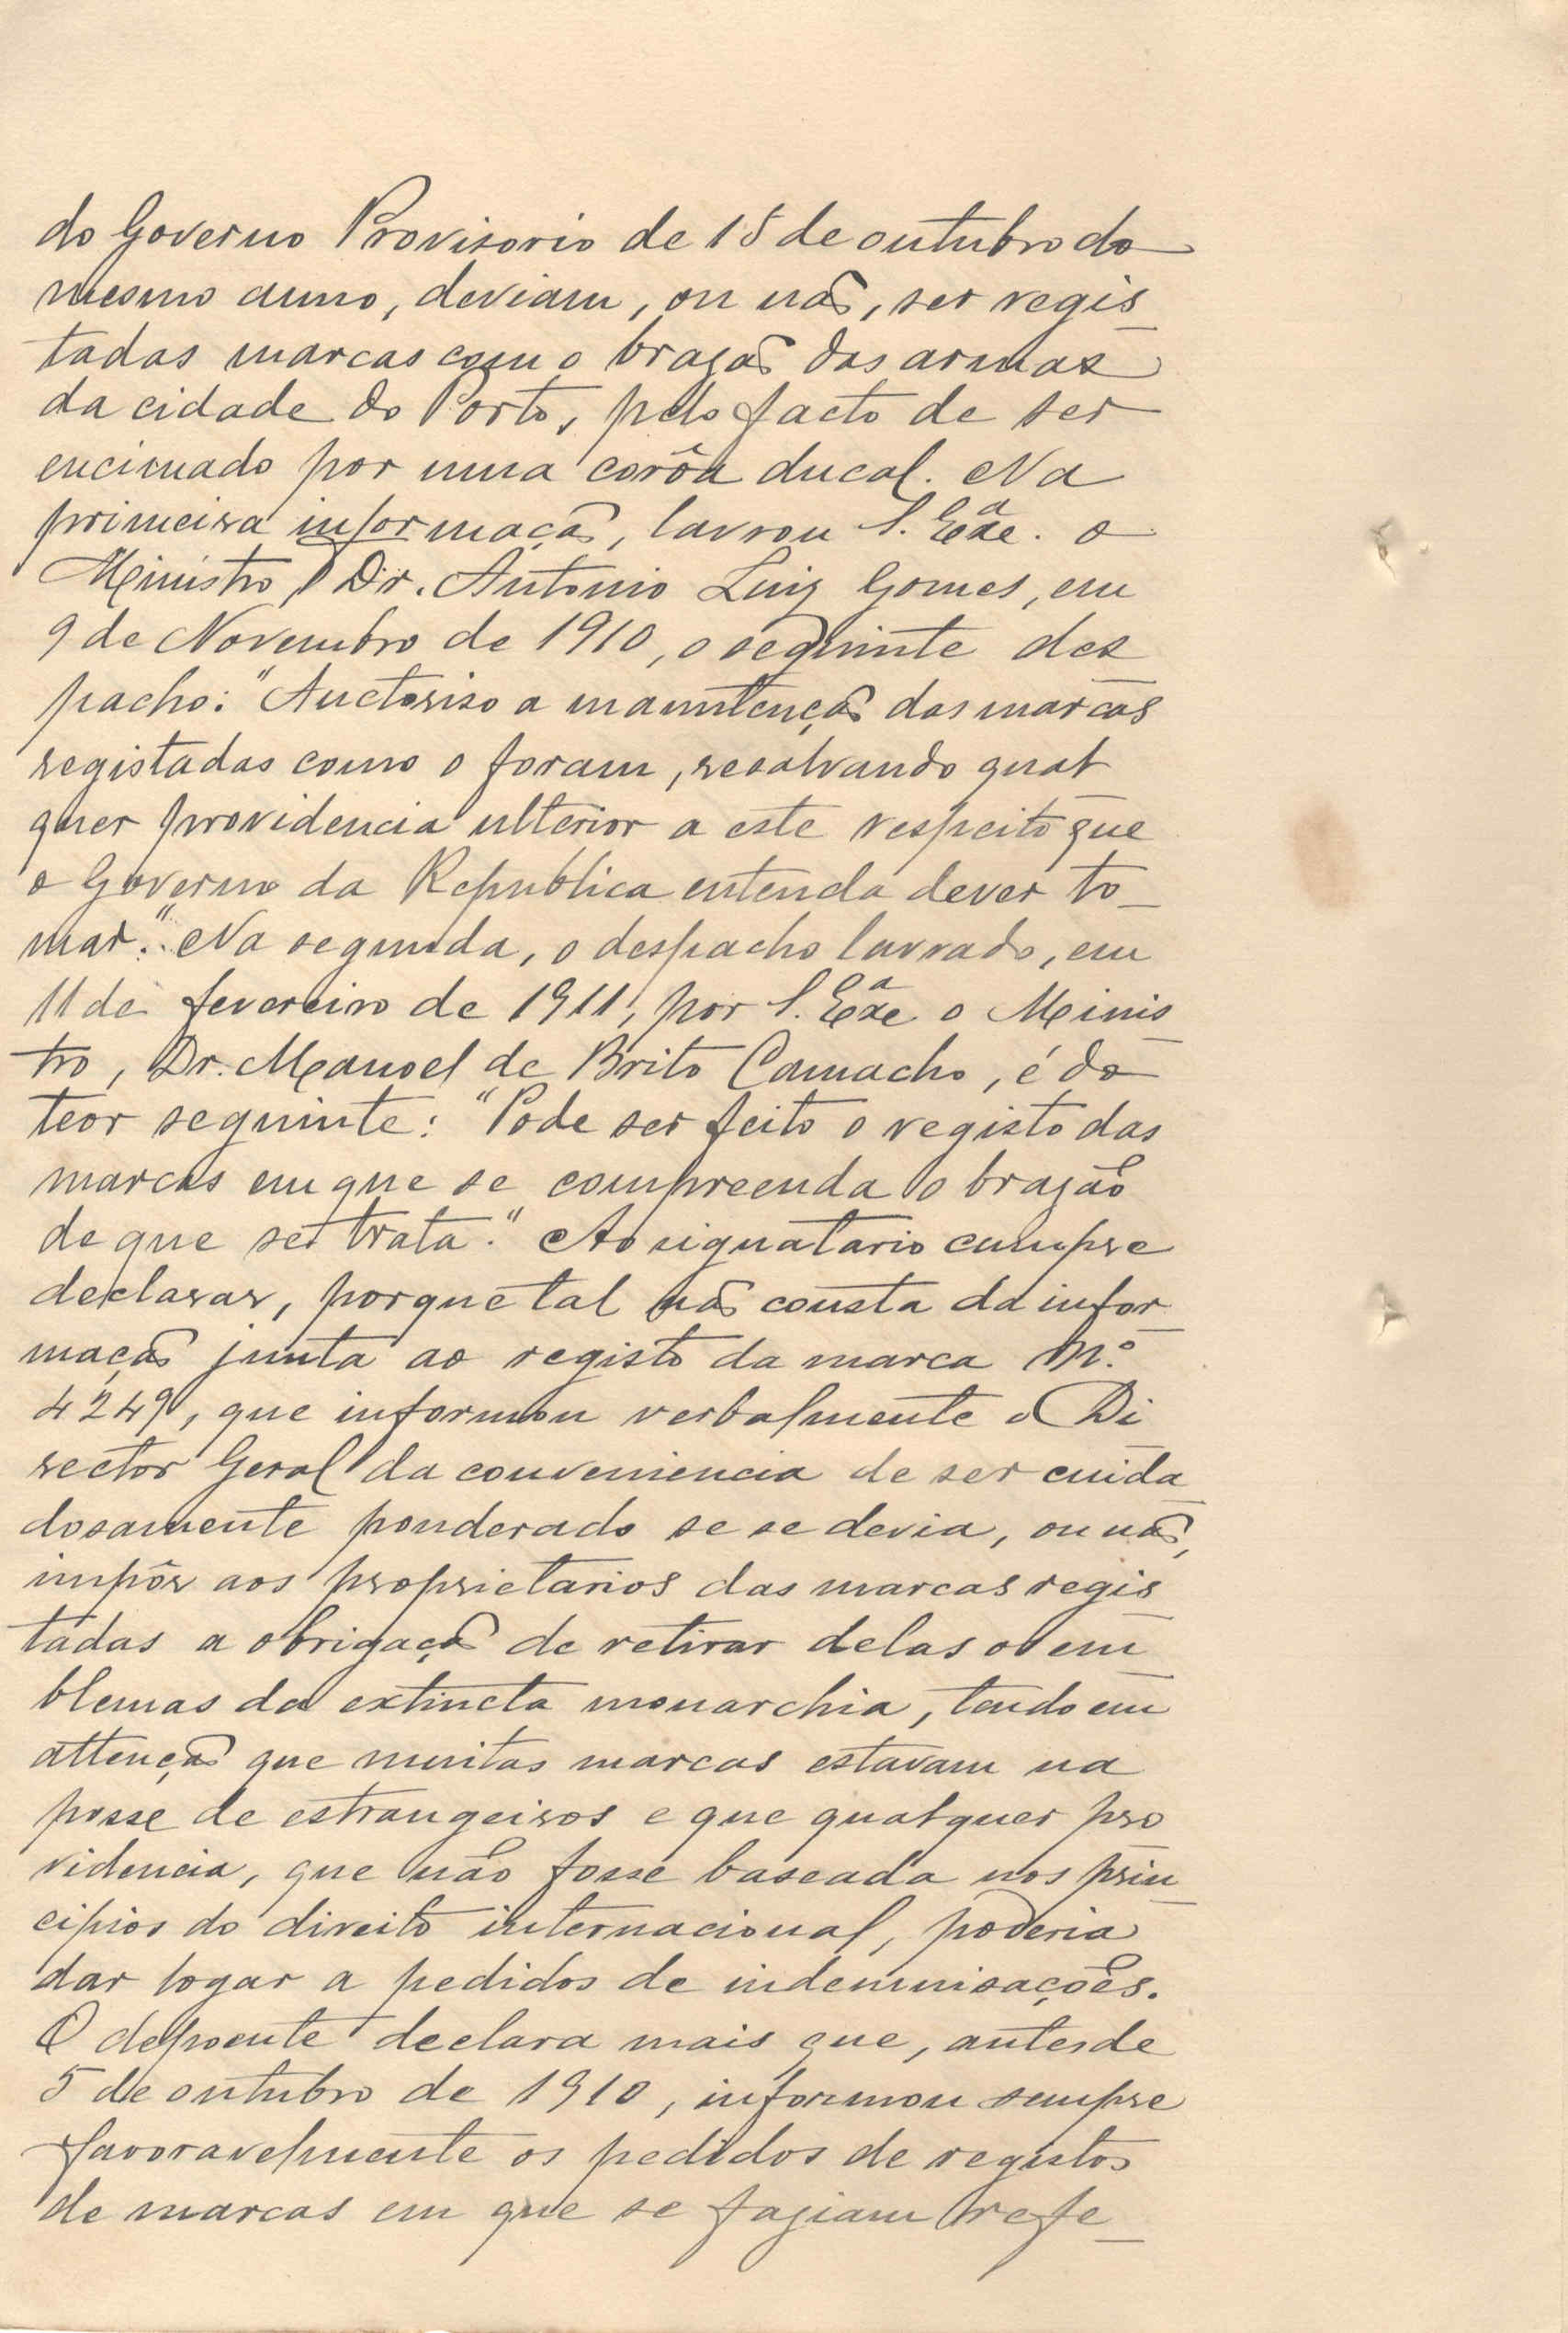 do Governo Provisorio de 15 de outubro do
mesmo anno, deviam, ou não, ser regis_
tadas marcas com o brazão das armas
da cidade do Porto, pelo facto de ser
encimado por uma corôa ducal. Na
primeira informação, lavrou S. Exa. o
Ministro, Dr. Antonio Luiz Gomes, em
9 de Novembro de 1910, o seguinte des_
pacho: "Auctoriso a manutenção das marcas
registadas como o foram, resalvando qual_
quer providencia ulterior a este respeito que
o Governo da Republica entenda dever to_
mar." Na segunda, o despacho lavrado, em
11 de fevereiro de 1911, por S. Exa o Minis_
tro, Dr. Manoel de Brito Camacho, é do
teor seguinte: "Pode ser feito o registo das
marcas em que se compreenda o brazão
de que se trata." Ao signatario cumpre
declarar, porque tal não consta da infor_
mação junta ao registo da marca Nº
4249, que informou verbalmente o Di_
rector Geral da conveniencia de ser cuida_
dosamente ponderado se se devia, ou não,
impôr aos proprietarios das marcas regis_
tadas a obrigação de retirar delas os em_
blemas da extincta monarchia, tendo em
attenção que muitas marcas estavam na
posse de estrangeiros e que qualquer pro_
videncia, que não fosse baseada nos prin_
cipios do direito internacional, poderia
dar logar a pedidos de indemnisações.
O depoente declara mais que, antes de
5 de outubro de 1910, informou sempre
favoravelmente os pedidos de registos
de marcas em que se faziam refe_